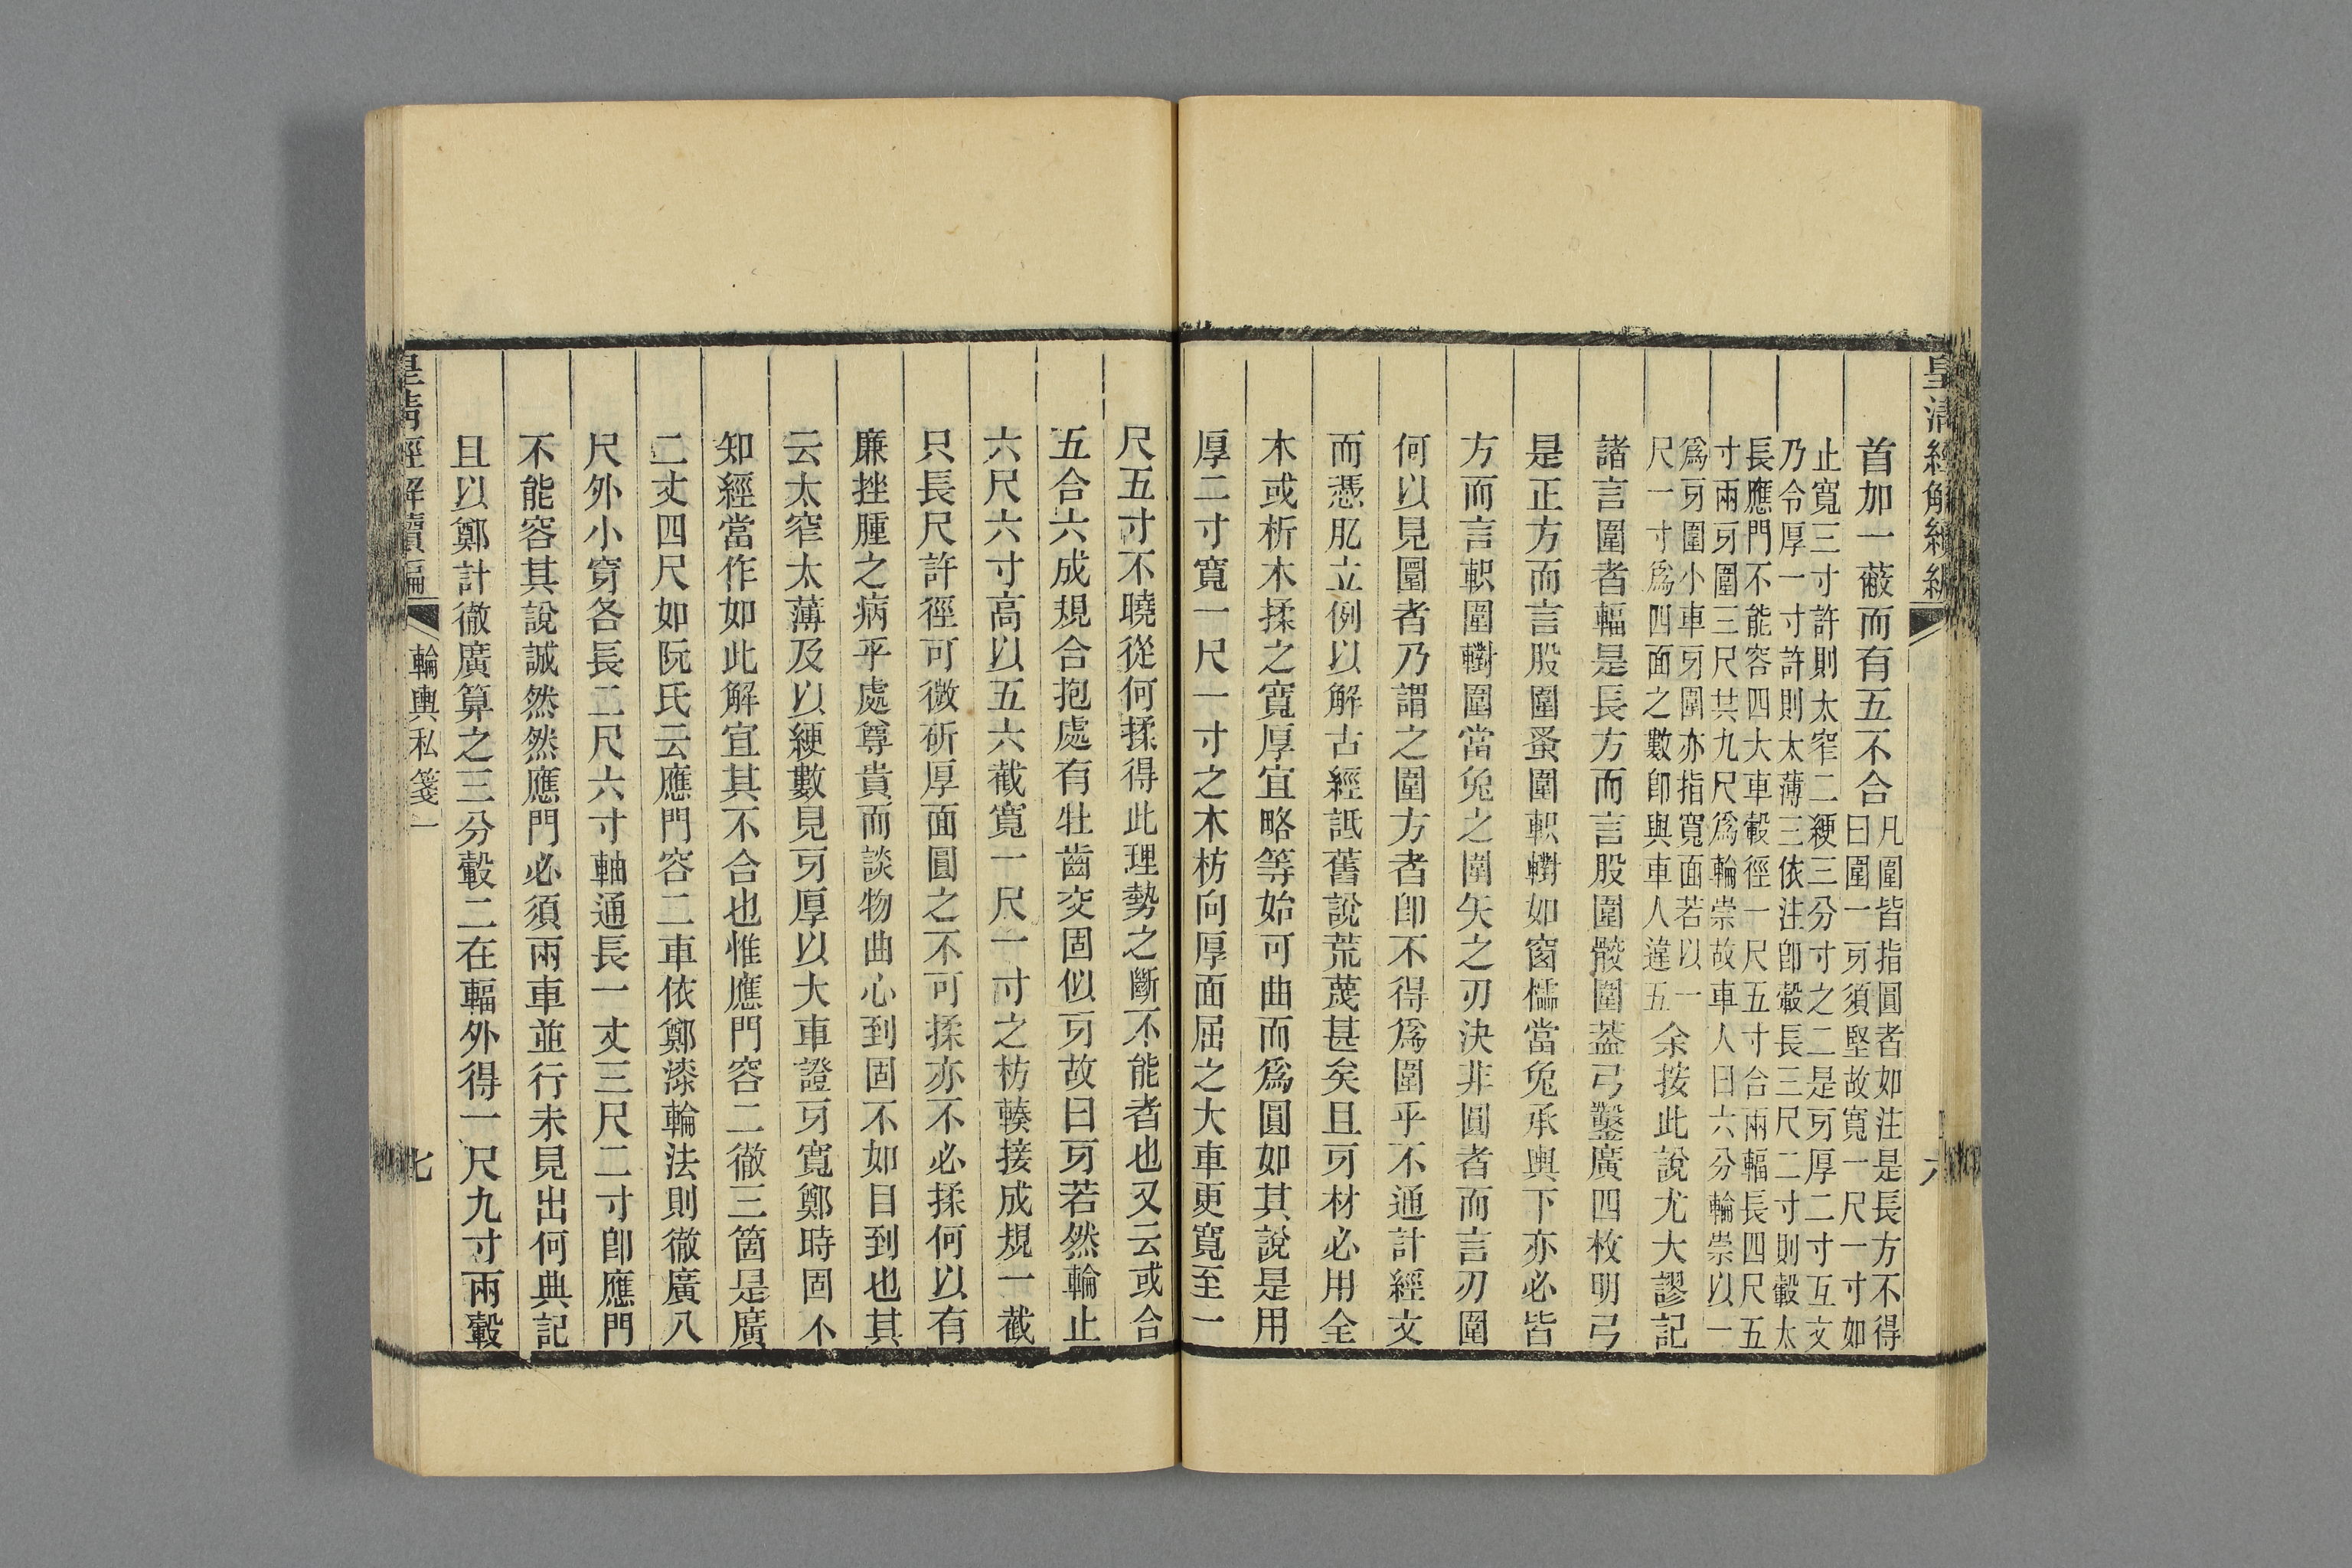 皇清經解續編
六
首加一蔽而有五不合凡圍皆指圓者如注是長方不得
曰圍一牙須堅故寬一尺一寸如
止寬三寸許則太窄二綆三分寸之二是牙厚二寸互文
乃令厚一寸許則太薄三依注卽轂長三尺二寸則轂太
長應門不能容四大車轂徑一尺五寸合兩輻長四尺五
寸兩牙圍三尺共九尺爲輪崇故車人曰六分輪崇以一
爲牙圍小車牙圍亦指寬面若以一
尺一寸爲四面之數卽與車人違五余按此說尤大謬記
諸言圍者輻是長方而言股圍骹圍蓋弓鑿廣四枚明弓
是正方而言股圍蚤圍軹轛如窗櫺當兔承輿下亦必皆
方而言軹圍轛圍當兔之圍矢之刃決非圓者而言刃圍
何以見圍者乃謂之圍方者卽不得爲圍乎不通計經文
而憑肊立例以解古經詆舊說荒蔑甚矣且牙材必用全
木或析木揉之寬厚宜略等始可曲而爲圓如其說是用
厚二寸寬一尺一寸之木枋向厚面屈之大車更寬至一
尺五寸不曉從何揉得此理勢之斷不能者也又云或合
五合六成規合抱處有牡齒交固似牙故曰牙若然輪止
六尺六寸高以五六截寬一尺一寸之枋輳接成規一截
只長尺許徑可微斫厚面圓之不可揉亦不必揉何以有
廉挫腫之病乎處尊貴而談物曲心到固不如目到也其
云太窄太薄及以綆數見牙厚以大車證牙寬鄭時固不
知經當作如此解宜其不合也惟應門容二徹三箇是廣
二丈四尺如阮氏云應門容二車依鄭漆輪法則徹廣八
尺外小穿各長二尺六寸軸通長一丈三尺二寸卽應門
不能容其說誠然然應門必須兩車並行未見出何典記
且以鄭計徹廣算之三分轂二在輻外得一尺九寸兩轂
皇清經解續編
輪輿私箋一
七